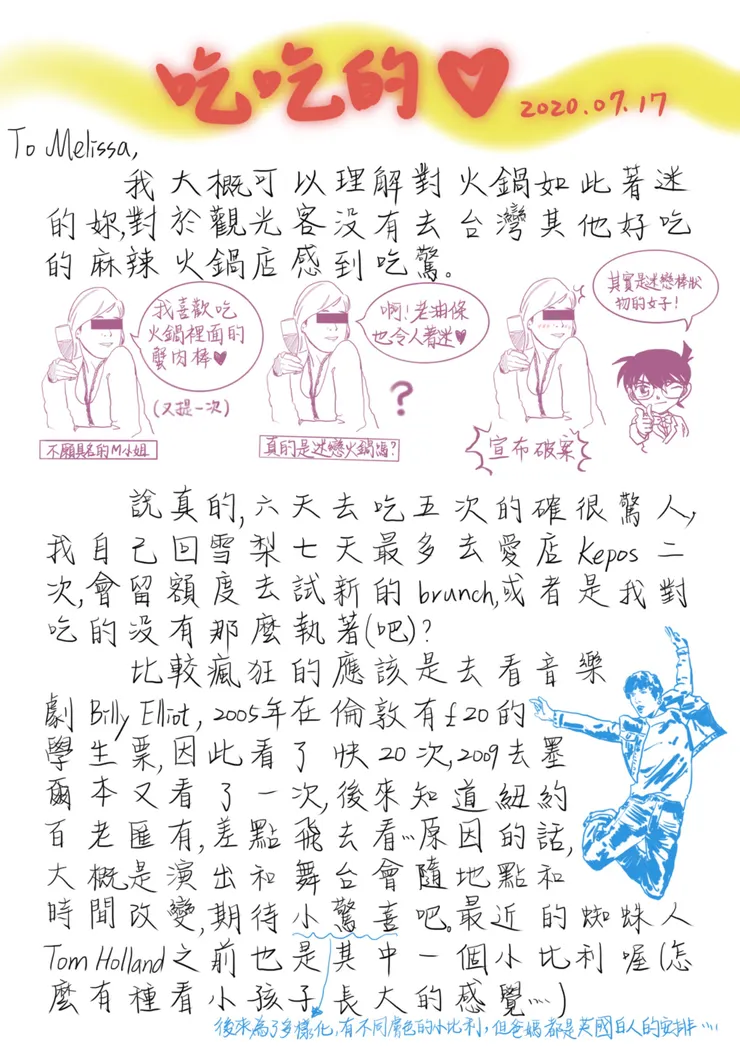 吃吃的♥
2020.07.17
To Melissa,
我大概可以理解對火鍋如此著迷
的妳,對於觀光客沒有去台灣其他好吃
的麻辣火鍋店感到吃驚。
我喜歡吃
火鍋裡面的
蟹肉棒♥
(又提一次)
不願具名的M小姐
啊!老油條
也令人著迷♥
?
真的是迷戀火鍋嗎?
其實是迷戀棒狀
物的女子!
宣布破案
說真的,六天去吃五次的確很驚人,
我自己回雪梨七天最多去愛店Kepos二
次,會留額度去試新的brunch,或者是我對
吃的沒有那麼執著(吧)?
比較瘋狂的應該是去看音樂
劇Billy Elliot, 2005年在倫敦有£20的
學生票,因此看了快20次,2009去墨
爾本又看了一次,後來知道紐約
百老匯有,差點飛去看…原因的話,
大概是演出和舞台會隨地點和
時間改變,期待小驚喜吧。最近的蜘蛛人
Tom Holland之前也是其中一個小比利喔(怎
麼有種看小孩子長大的感覺…)
後來為了多樣化,有不同膚色的小比利,但爸媽都是英國白人的安排…